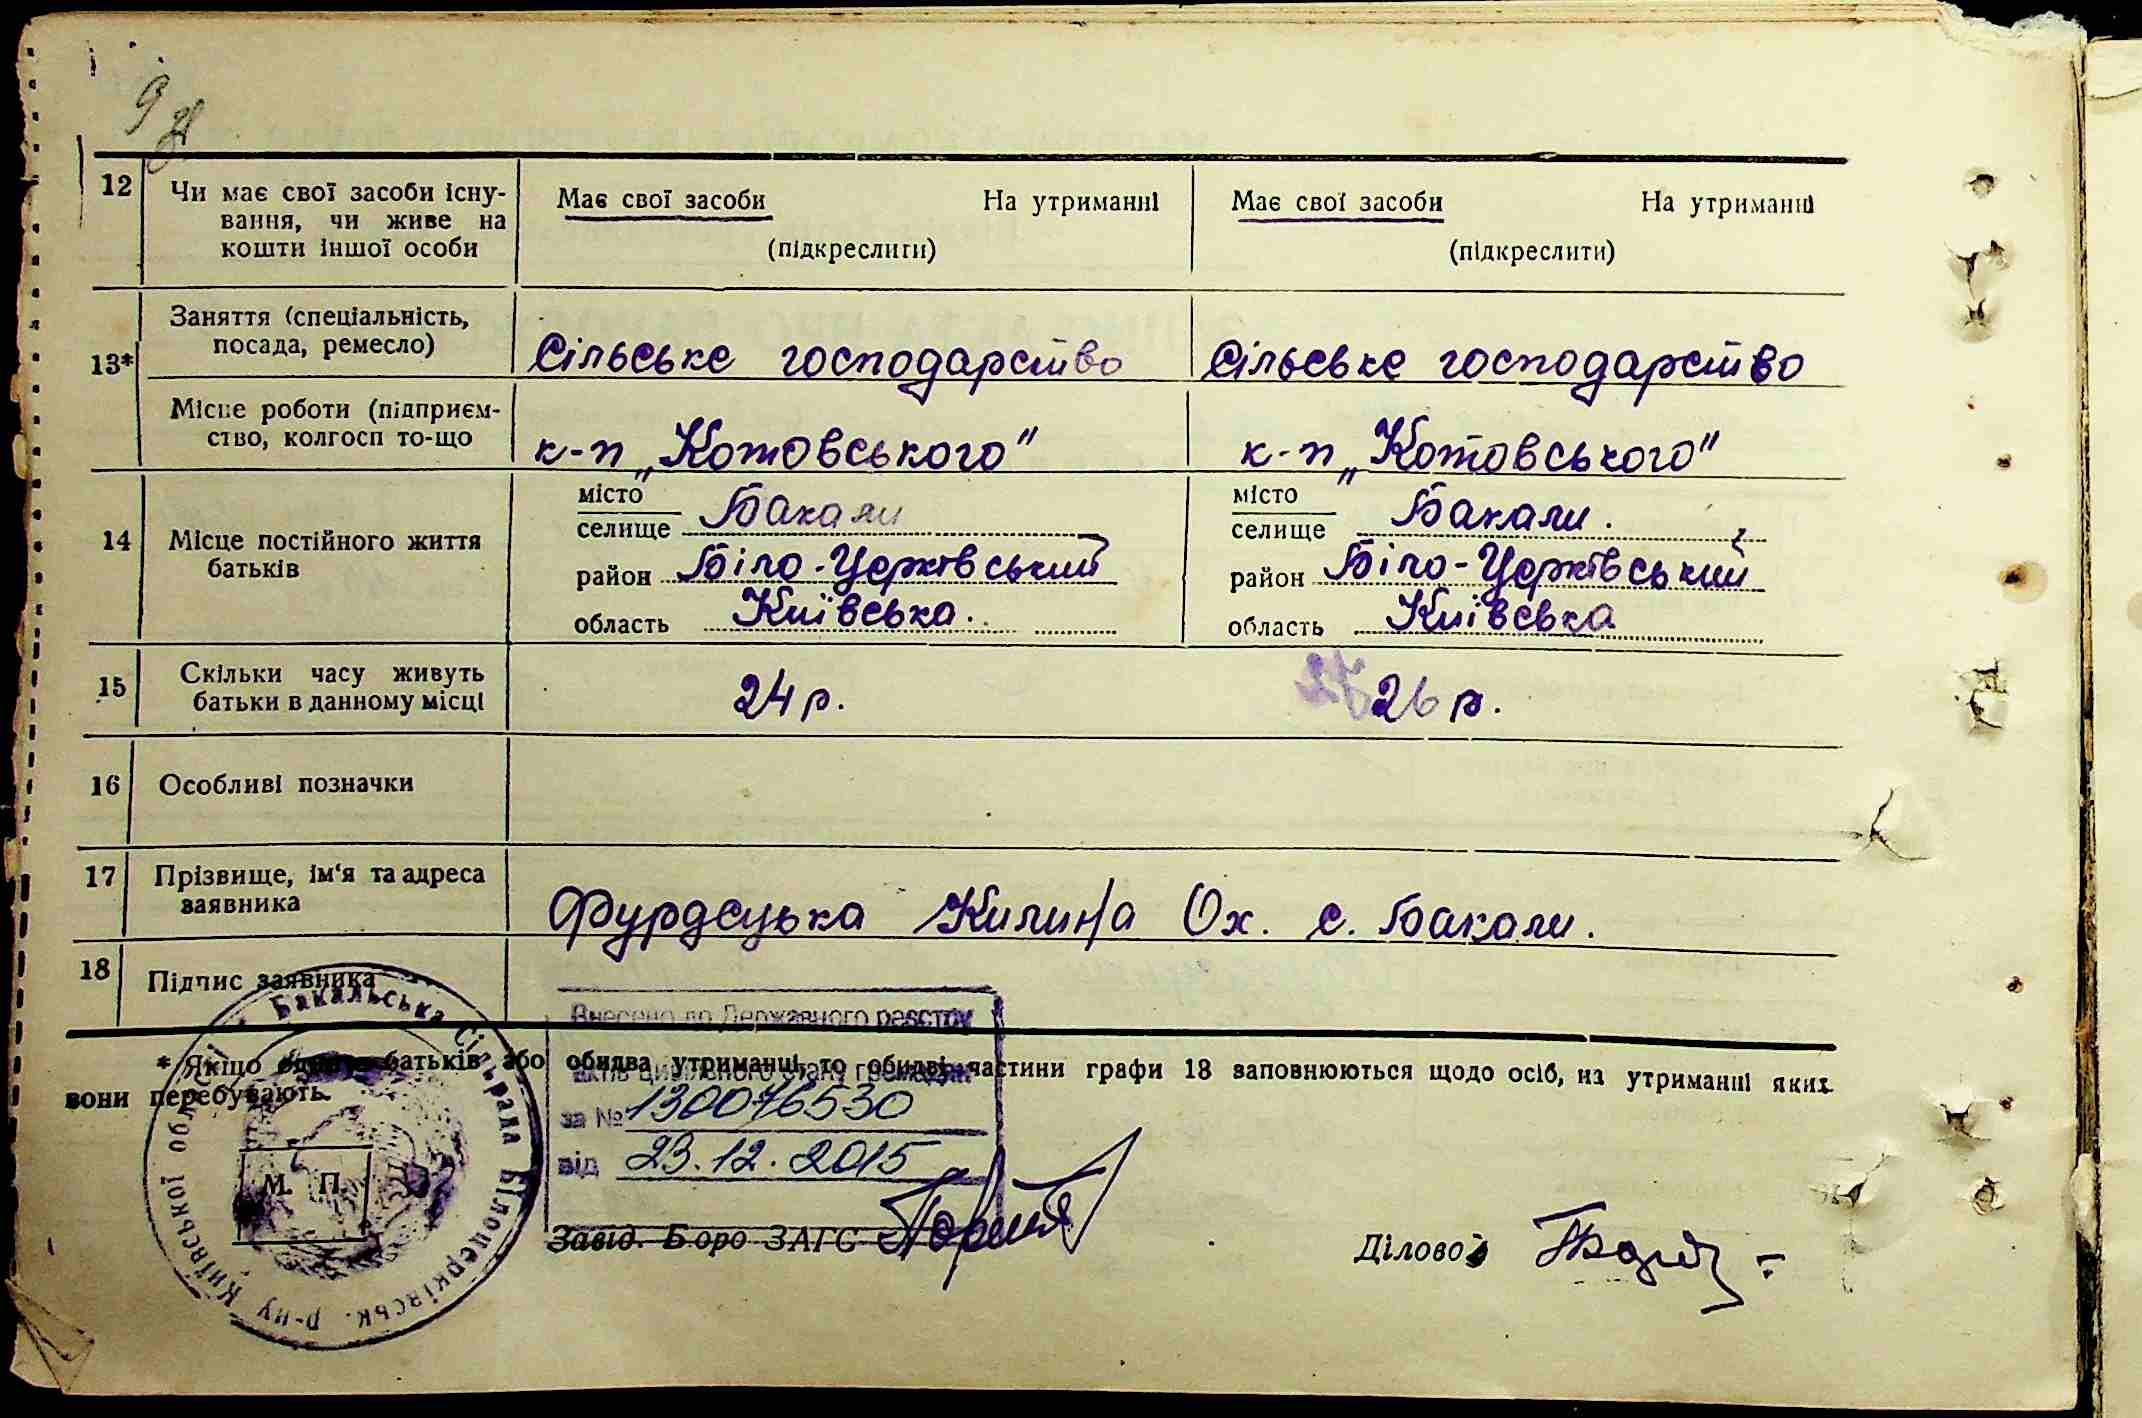 9
12 Чи має свої засоби існу-
вання, чи живе на
кошти іншої особи
Має свої засоби На утриманні
(підкреслити)
Має свої засоби На утриманні
(підкреслити)
13*
Заняття (спеціальність,
посада, ремесло)
Сільське господарство
Сільське господарство
Місце роботи (підприєм-
ство, колгосп то-що
к-п „Котовського"
к-п „Котовського"
14 Місце постійного життя
батьків
місто
селище Бакали
район Біло-Церківський
область Київська.
місто
селище Бакали.
район Біло-Церківський
область Київська
15 Скільки часу живуть
батьки в данному місці
24 р.
26 р.
16 Особливі позначки
17 Прізвище, ім'я та адреса
заявника
Фурдецька Килина Ох. с. Бакали.
18 Підпис заявника
* Якщо батьків або обидва утриманці, то обидві частини графи 18 заповнюються щодо осіб, на утриманні яких
вони перебувають.
Бакальська сільрада Білоцерківськ. р-ну Київської області
М. П.
Внесено до Державного реєстру
актів цивільного стану громадян
за № 130076530
від 23.12.2015
Завід. Боро ЗАГС
Діловод